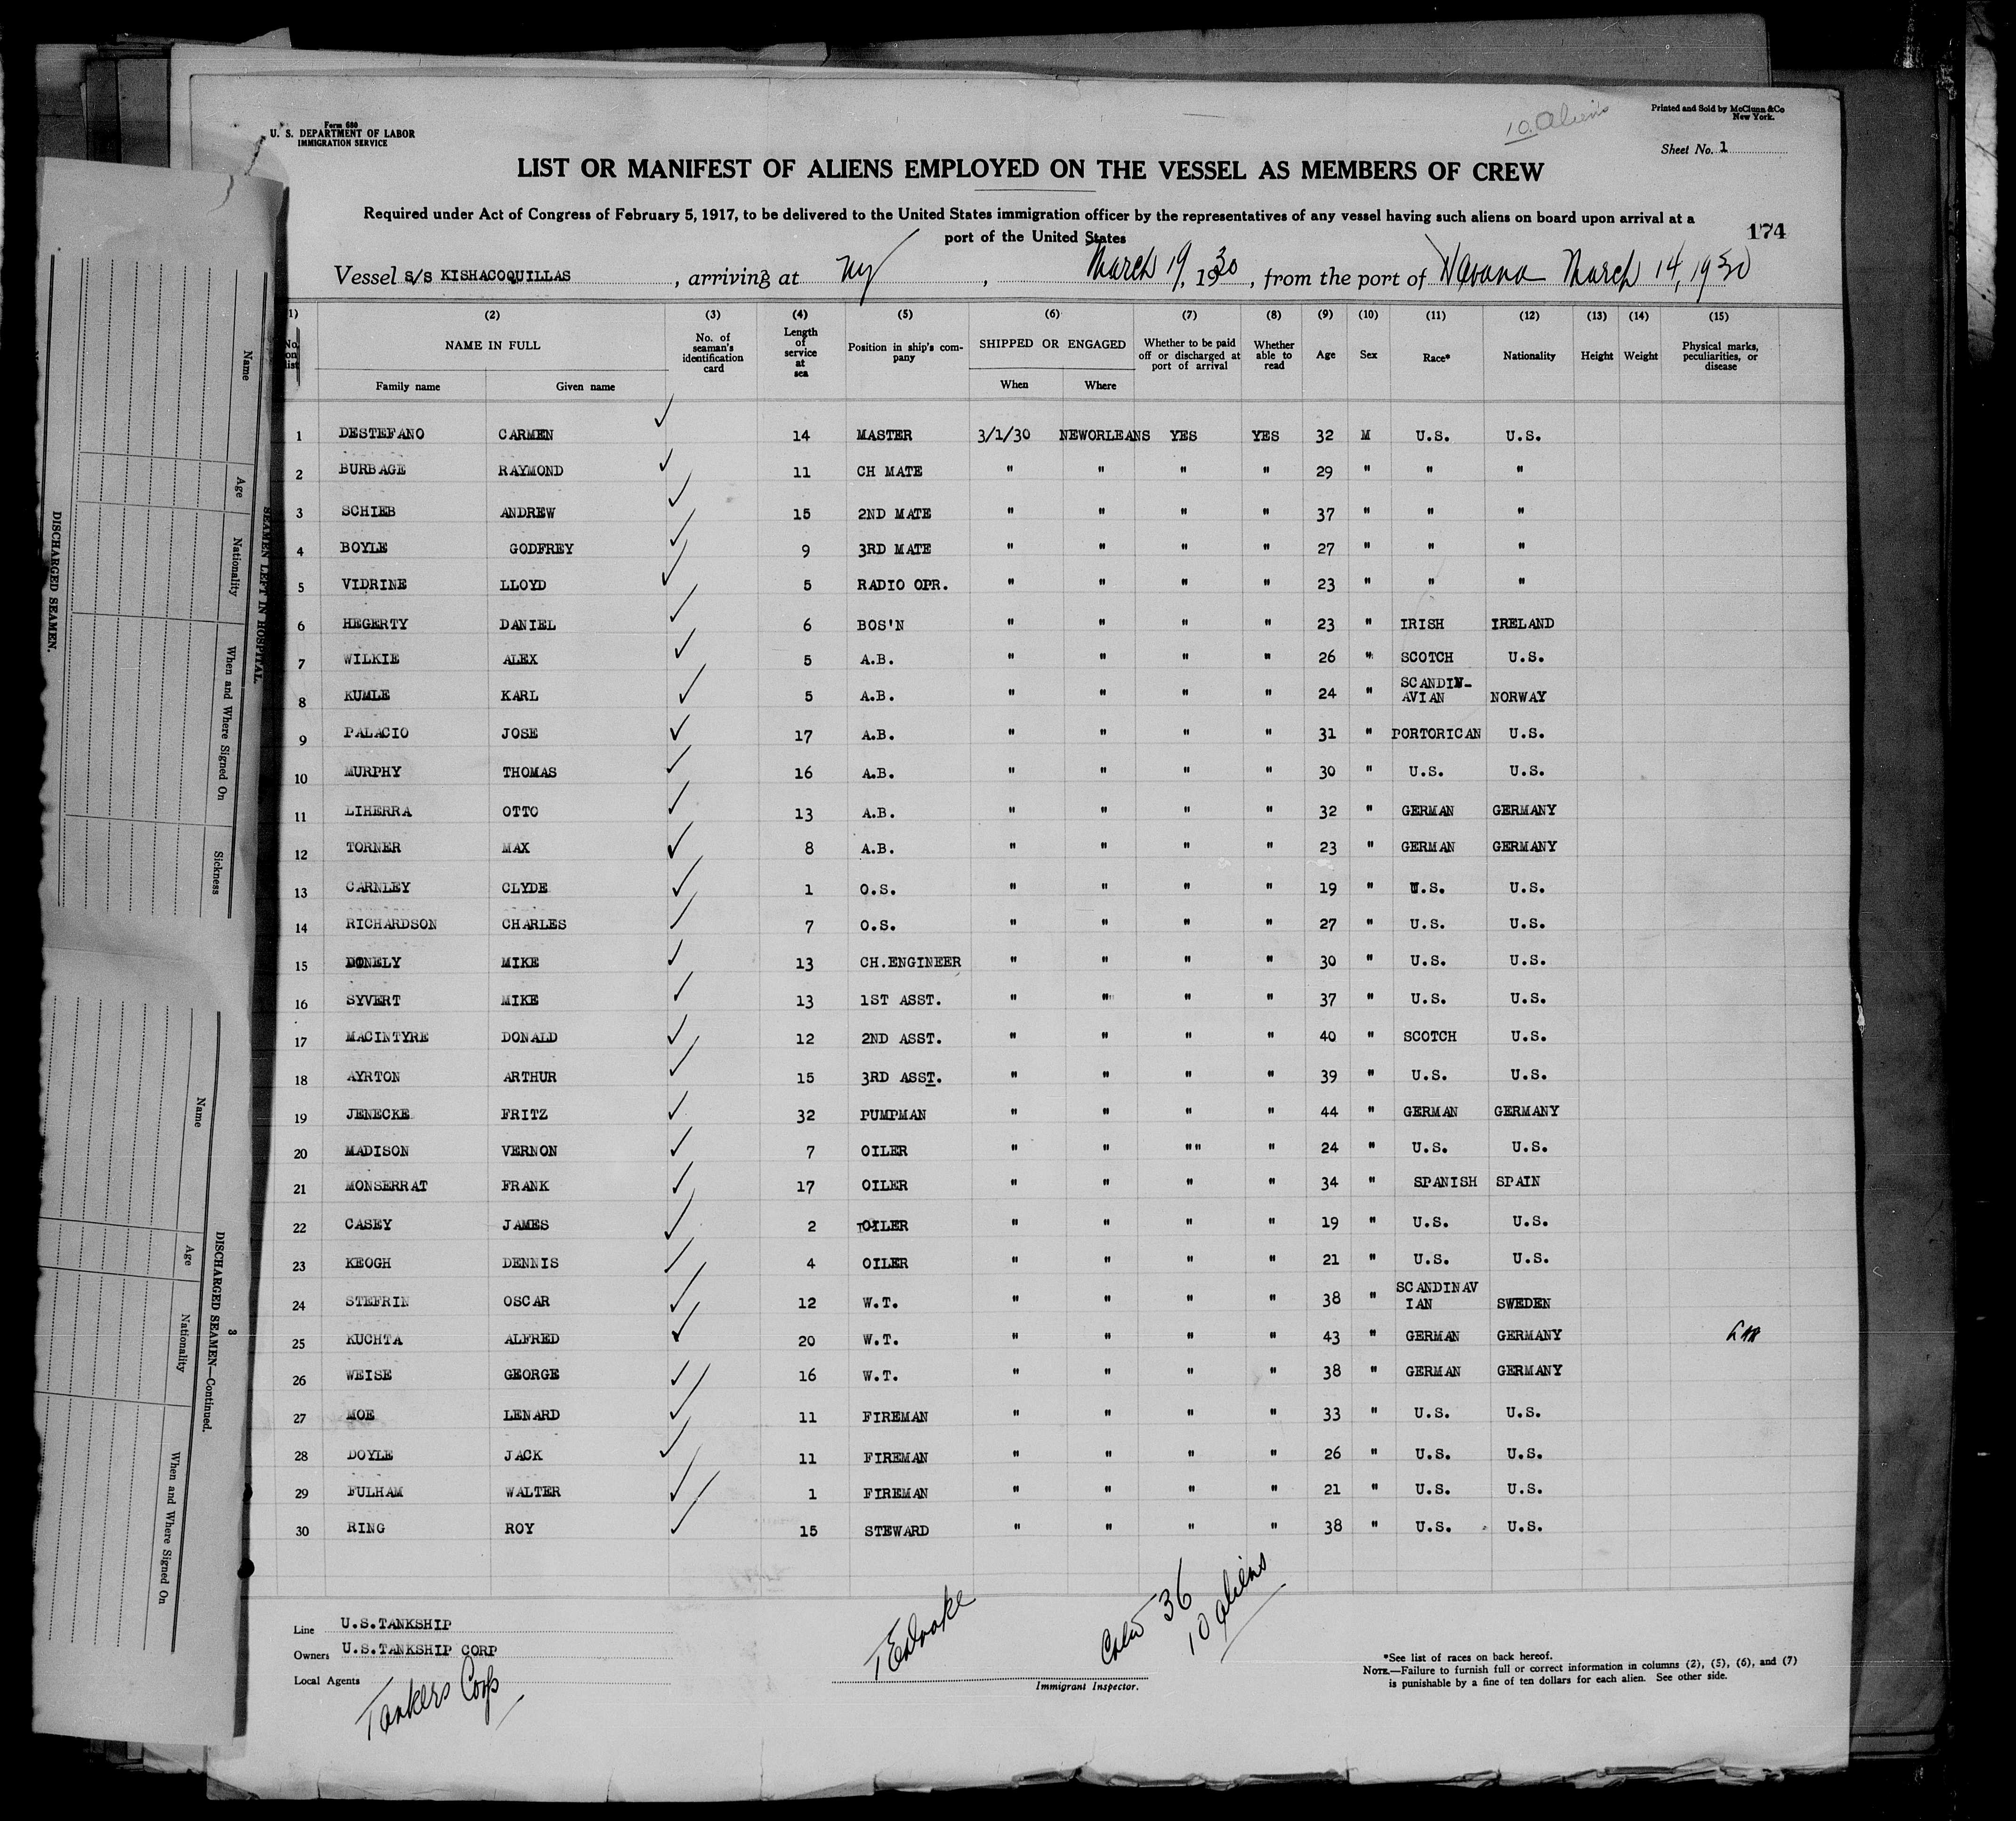 Form 680
U. S. DEPARTMENT OF LABOR
IMMIGRATION SERVICE
10 Aliens
Printed and Sold by McClunn & Co
New York.
Sheet No. 1
LIST OR MANIFEST OF ALIENS EMPLOYED ON THE VESSEL AS MEMBERS OF CREW
Required under Act of Congress of February 5, 1917, to be delivered to the United States immigration officer by the representatives of any vessel having such aliens on board upon arrival at a
port of the United States
174
Vessel S/S KISHACOQUILLAS, arriving at NY, March 19, 1930, from the port of Havana March 14, 1930
(1) (2) (3) (4) (5) (6) (7) (8) (9) (10) (11) (12) (13) (14) (15)
No. on list NAME IN FULL Family name Given name No. of seaman's identification card Length of service at sea Position in ship's company SHIPPED OR ENGAGED When Where Whether to be paid off or discharged at port of arrival Whether able to read Age Sex Race* Nationality Height Weight Physical marks, peculiarities, or disease
1 DESTEFANO CARMEN 14 MASTER 3/1/30 NEWORLEANS YES YES 32 M U.S. U.S.
2 BURBAGE RAYMOND 11 CH MATE " " " " 29 " " "
3 SCHIEB ANDREW 15 2ND MATE " " " " 37 " " "
4 BOYLE GODFREY 9 3RD MATE " " " " 27 " " "
5 VIDRINE LLOYD 5 RADIO OPR. " " " " 23 " " "
6 HEGERTY DANIEL 6 BOS'N " " " " 23 " IRISH IRELAND
7 WILKIE ALEX 5 A.B. " " " " 26 " SCOTCH U.S.
8 KUMLE KARL 5 A.B. " " " " 24 " SCANDIN-AVIAN NORWAY
9 PALACIO JOSE 17 A.B. " " " " 31 " PORTORICAN U.S.
10 MURPHY THOMAS 16 A.B. " " " " 30 " U.S. U.S.
11 LIHERRA OTTO 13 A.B. " " " " 32 " GERMAN GERMANY
12 TORNER MAX 8 A.B. " " " " 23 " GERMAN GERMANY
13 CARNLEY CLYDE 1 O.S. " " " " 19 " U.S. U.S.
14 RICHARDSON CHARLES 7 O.S. " " " " 27 " U.S. U.S.
15 DONELY MIKE 13 CH.ENGINEER " " " " 30 " U.S. U.S.
16 SYVERT MIKE 13 1ST ASST. " " " " 37 " U.S. U.S.
17 MACINTYRE DONALD 12 2ND ASST. " " " " 40 " SCOTCH U.S.
18 AYRTON ARTHUR 15 3RD ASST. " " " " 39 " U.S. U.S.
19 JENECKE FRITZ 32 PUMPMAN " " " " 44 " GERMAN GERMANY
20 MADISON VERNON 7 OILER " " "" " 24 " U.S. U.S.
21 MONSERRAT FRANK 17 OILER " " " " 34 " SPANISH SPAIN
22 CASEY JAMES 2 OILER " " " " 19 " U.S. U.S.
23 KEOGH DENNIS 4 OILER " " " " 21 " U.S. U.S.
24 STEFRIN OSCAR 12 W.T. " " " " 38 " SCANDINAV IAN SWEDEN
25 KUCHTA ALFRED 20 W.T. " " " " 43 " GERMAN GERMANY
26 WEISE GEORGE 16 W.T. " " " " 38 " GERMAN GERMANY
27 MOE LENARD 11 FIREMAN " " " " 33 " U.S. U.S.
28 DOYLE JACK 11 FIREMAN " " " " 26 " U.S. U.S.
29 FULHAM WALTER 1 FIREMAN " " " " 21 " U.S. U.S.
30 RING ROY 15 STEWARD " " " " 38 " U.S. U.S.
Line U.S.TANKSHIP
Owners U.S.TANKSHIP CORP
Local Agents Tankers Corp
Immigrant Inspector.
Crew 36
10 aliens
*See list of races on back hereof.
NOTE.—Failure to furnish full or correct information in columns (2), (5), (6), and (7)
is punishable by a fine of ten dollars for each alien. See other side.
SEAMEN LEFT IN HOSPITAL.
Name Age Nationality When and Where Signed On Sickness
DISCHARGED SEAMEN.
3
DISCHARGED SEAMEN—Continued.
Name Age Nationality When and Where Signed On